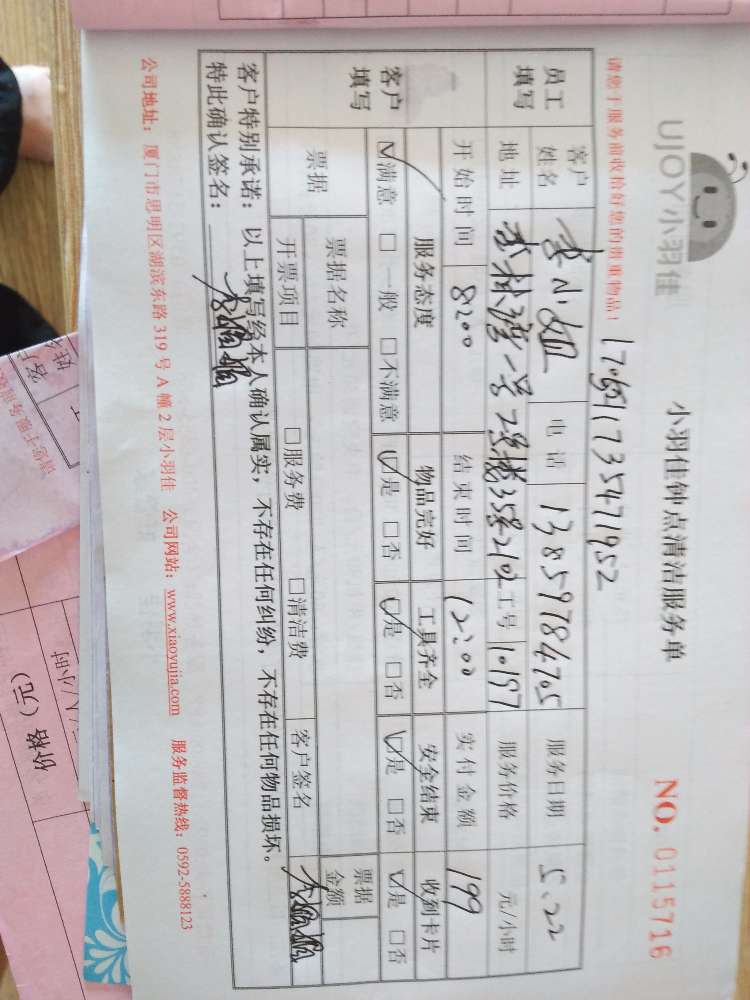 UJOY小羽佳
小羽佳钟点清洁服务单
NO. 0115716
请您于服务前收拾好您的贵重物品!
17351735471952
员工填写
客户姓名 李小姐 电话 13859784705 服务日期 5.22
地址 杏林湾一号 2号楼 3582102 工号 10197 服务价格 元/小时
开始时间 8:00 结束时间 12:00 实付金额 199
客户填写
服务态度 物品完好 工具齐全 安全结束 收到卡片
☑满意 □一般 □不满意 ☑是 □否 ☑是 □否 ☑是 □否 ☑是 □否
票据 票据名称 票据金额
开票项目 □服务费 □清洁费 客户签名
客户特别承诺:以上填写经本人确认属实,不存在任何纠纷,不存在任何物品损坏。
特此确认签名:
公司地址:厦门市思明区湖滨东路 319 号 A 幢 2 层小羽佳 公司网站:www.xiaoyujia.com 服务监督热线:0592-5888123
客户
姓名
价格(元)
元/人/小时